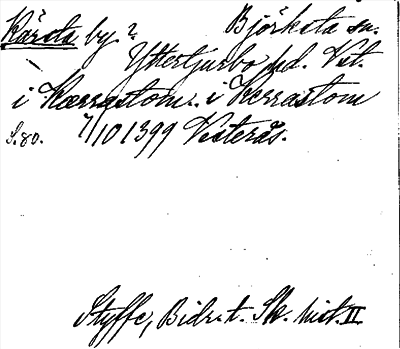 Kärsta by? Björksta sn.
Yttertjurbo hd. Vst.
i Kærrastom. i Kerrastom
S. 80. 7/10 1399 Vesterås.
Styffe, Bidr. t. Sk. hist. II